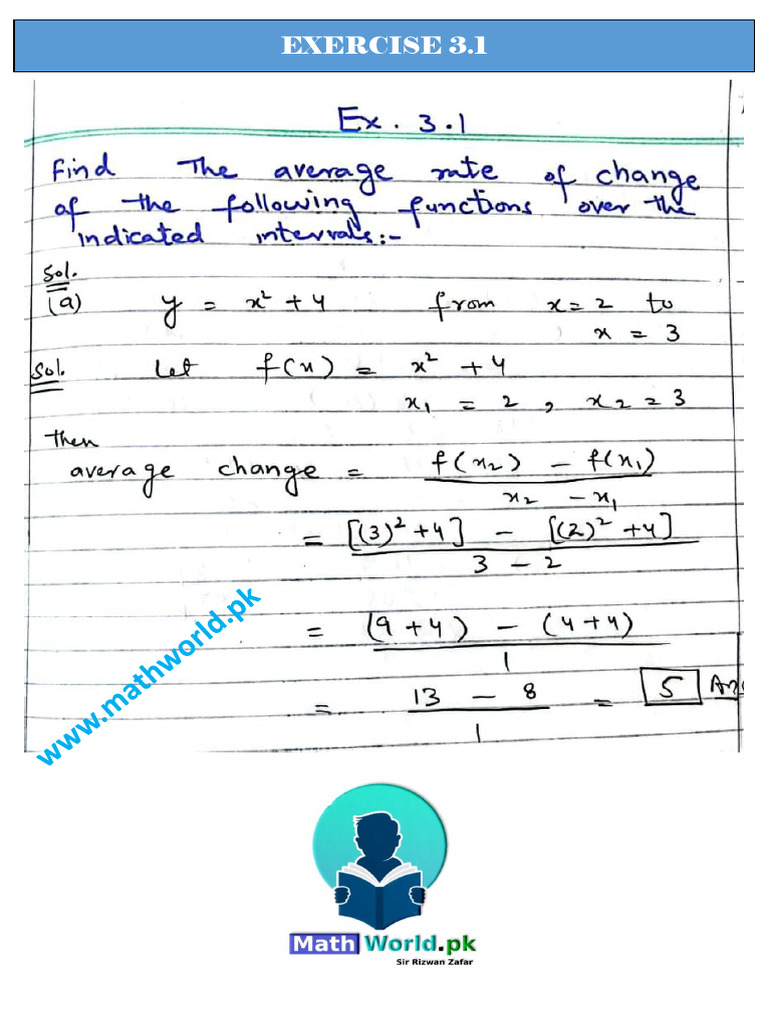 EXERCISE 3.1
Ex. 3.1
Find The average rate of change
of the following functions over the
indicated intervals:-
Sol.
(a) y = x² + 4 from x = 2 to
x = 3
Sol. Let f(x) = x² + 4
x₁ = 2 , x₂ = 3
then
average change = f(x₂) - f(x₁)
x₂ - x₁
= [(3)² + 4] - [(2)² + 4]
3 - 2
= (9 + 4) - (4 + 4)
1
= 13 - 8 = 5 Ans
1
www.mathworld.pk
Math World.pk
Sir Rizwan Zafar